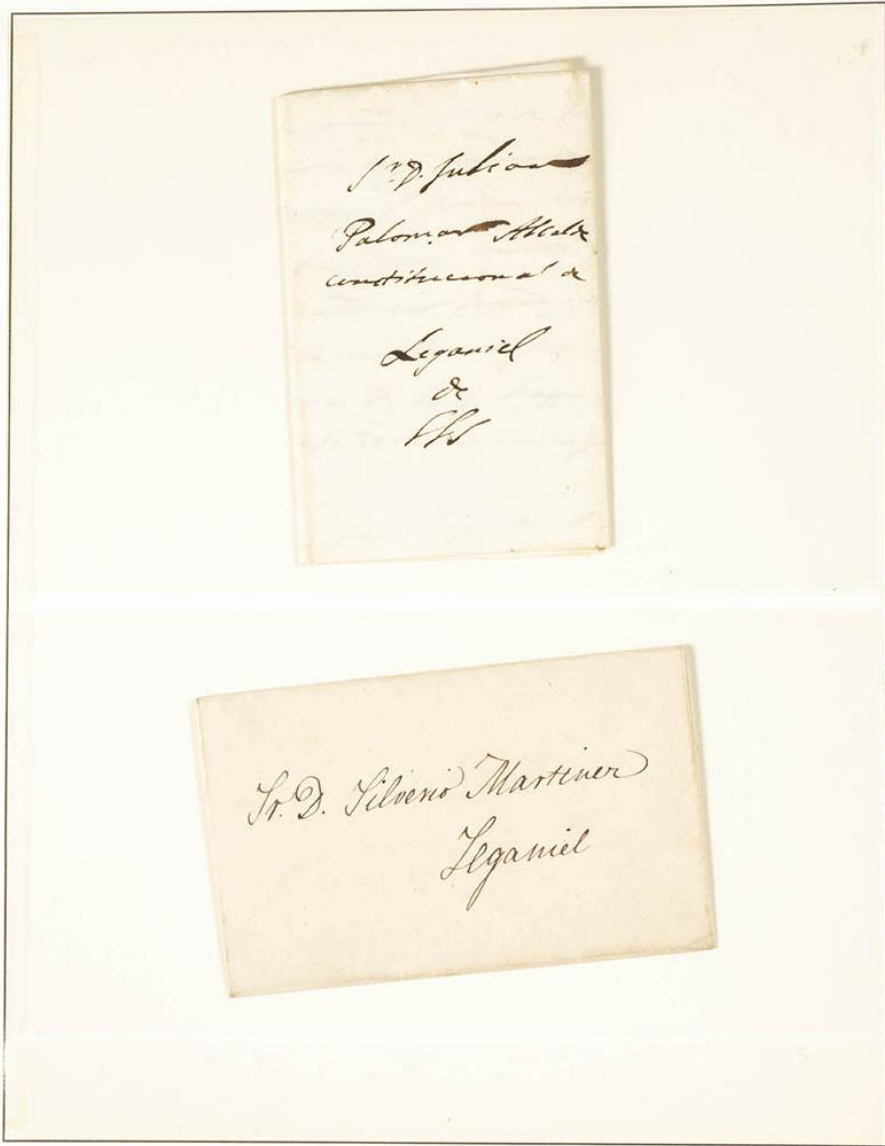 Sr. D. Julian
Palomar Alcalde
constitucional de
Leganiel
de
SSS
Sr. D. Silverio Martinez
Leganiel